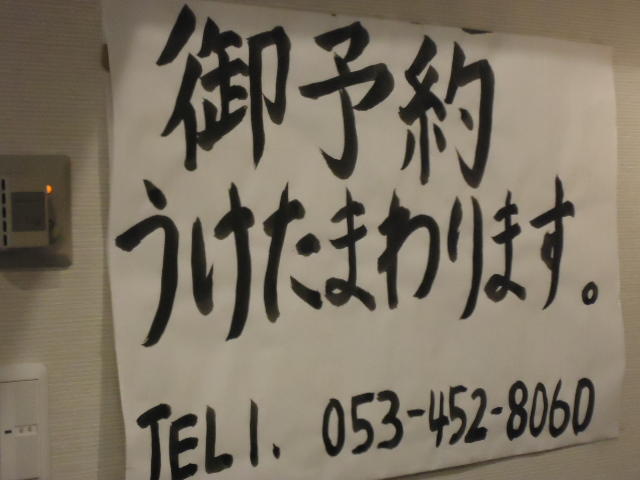 御予約
うけたまわります。
TEL1. 053-452-8060